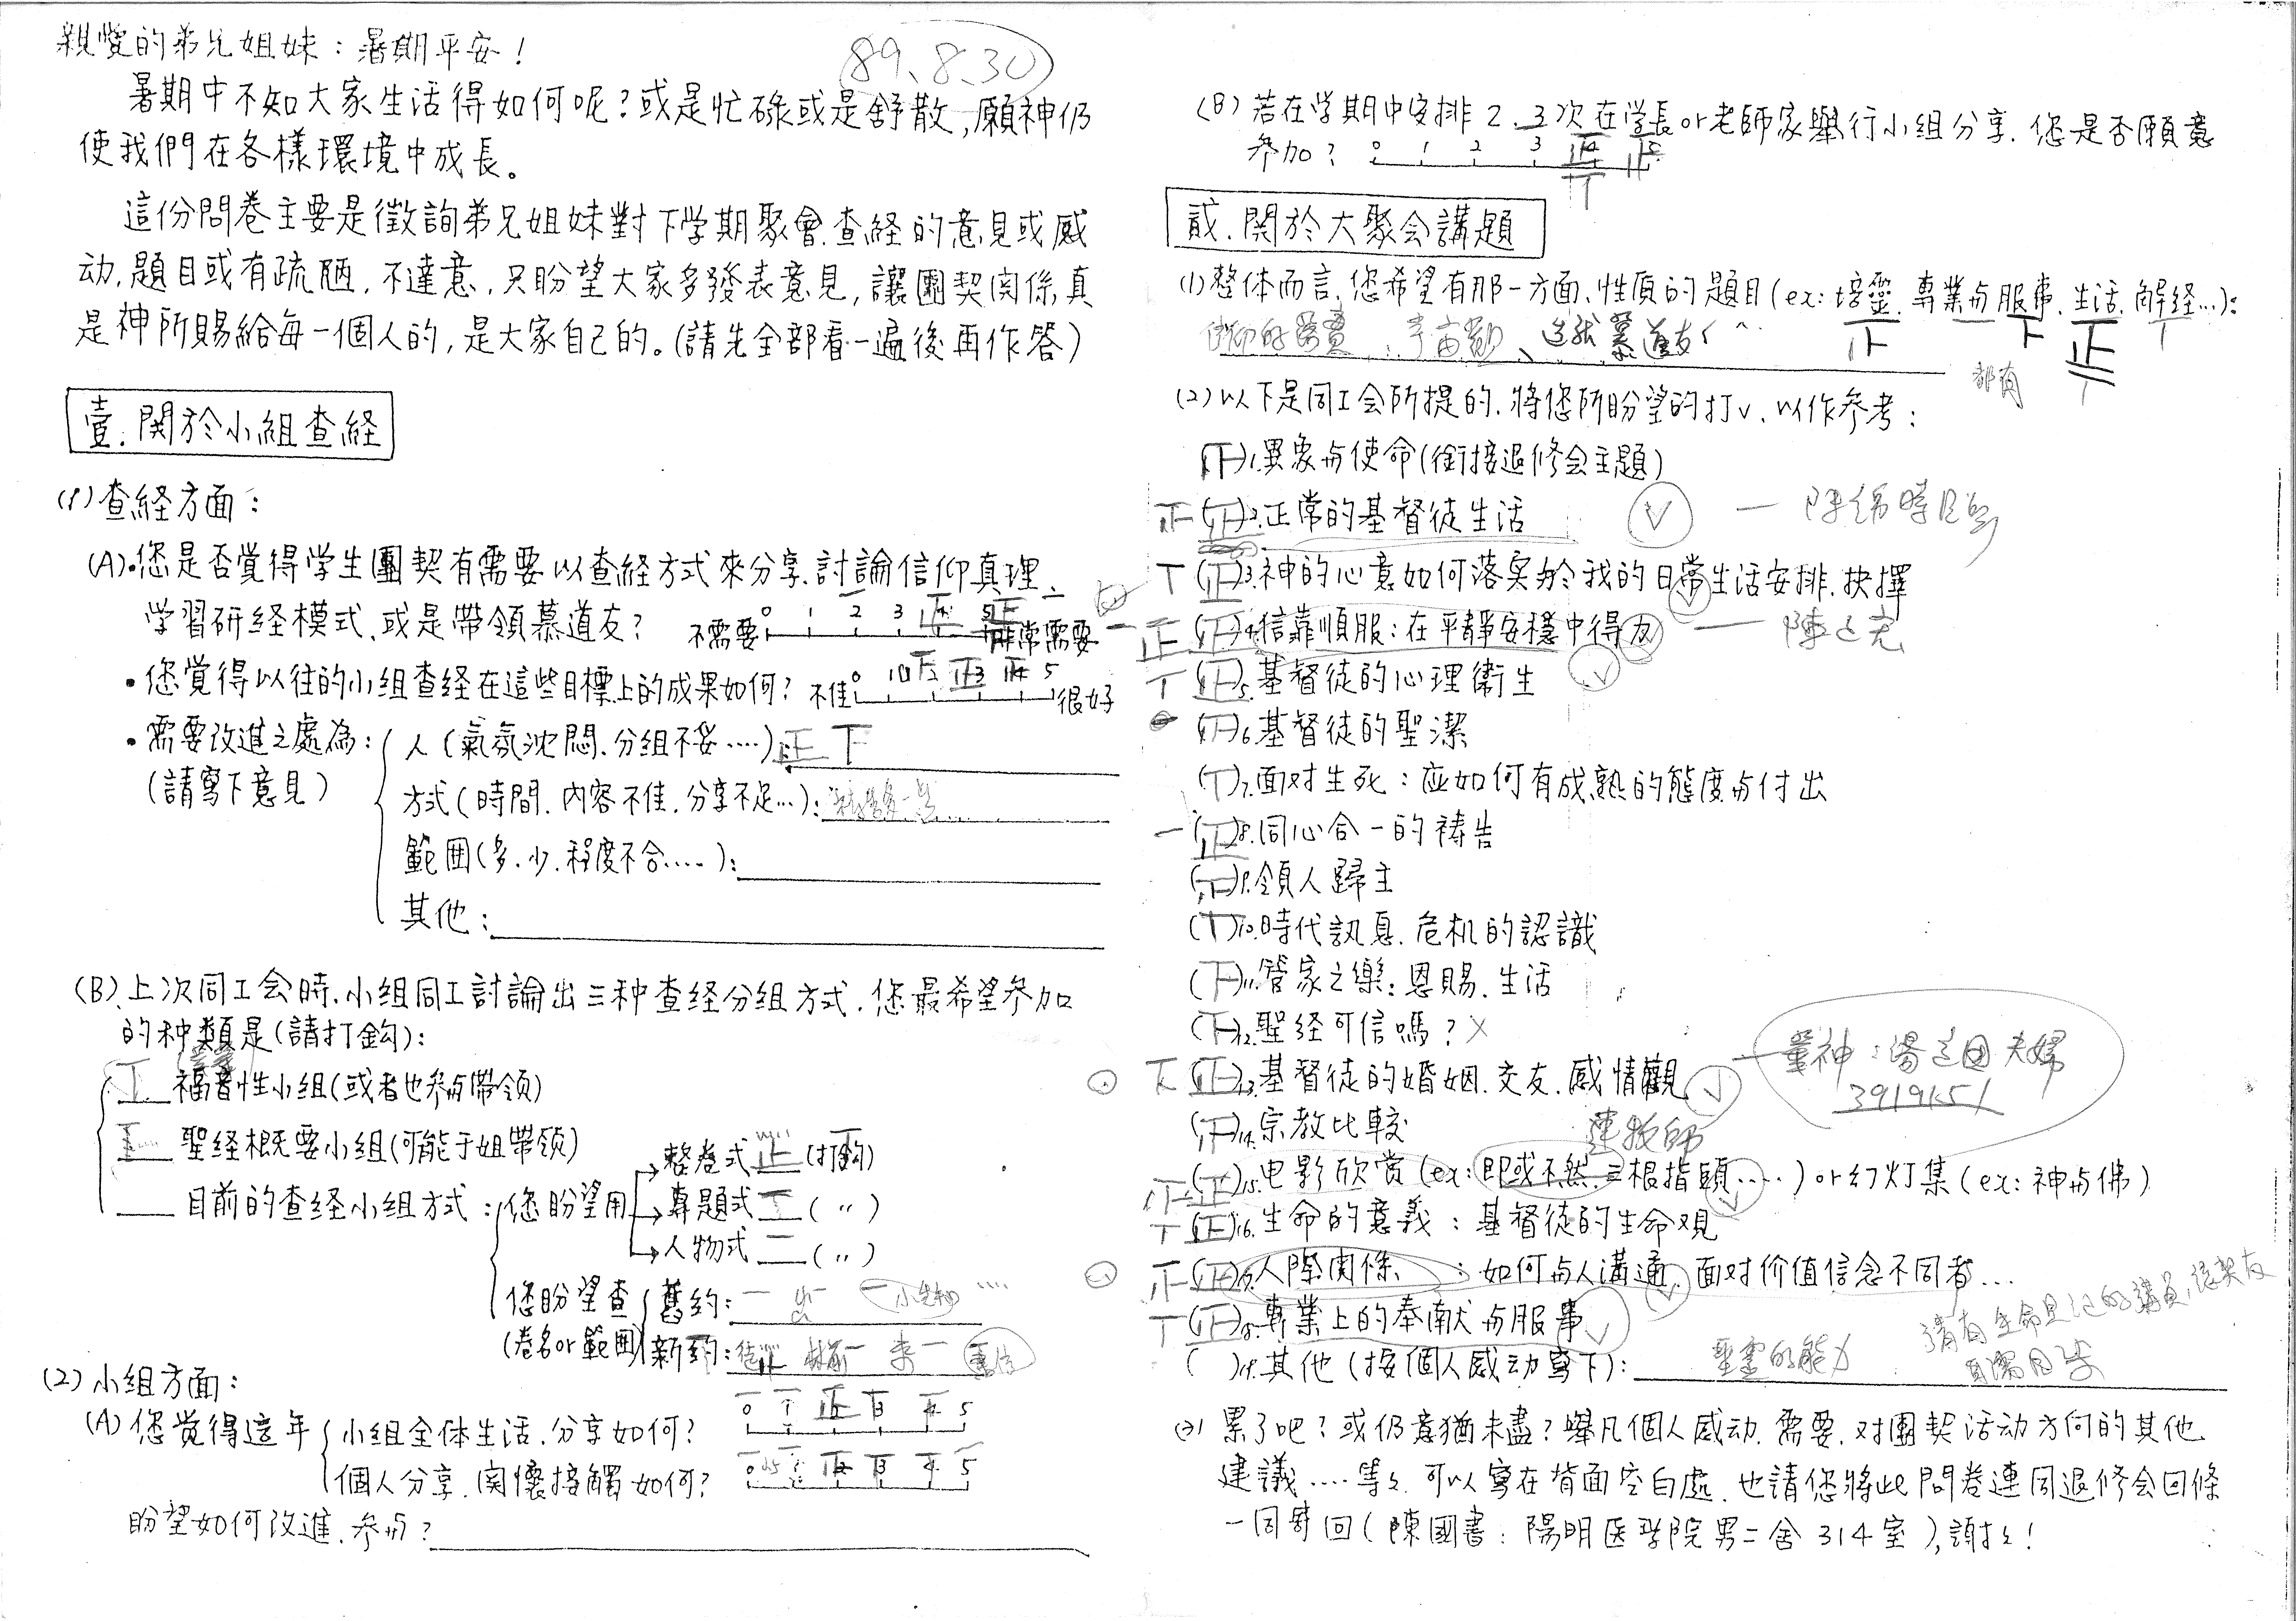 親愛的弟兄姐妹：暑期平安！
89、8、30
暑期中不知大家生活得如何呢？或是忙碌或是舒散，願神仍
使我們在各樣環境中成長。
這份問卷主要是徵詢弟兄姐妹對下学期聚會.查経的意見或感
动,題目或有疏陋，不達意，只盼望大家多發表意見，讓團契関係真
是神所賜給每一個人的，是大家自己的。(請先全部看一遍後再作答)
壹.関於小組查経
(1)查経方面：
(A)•您是否覺得学生團契有需要以查経方式來分享.討論信仰真理、
学習研経模式、或是帶領慕道友？ 不需要 0 1 2 3 4 5 非常需要
•您覺得以往的小組查経在這些目標上的成果如何？ 不佳 0 1 2 3 4 5 很好
•需要改進之處為：人(氣氛沈悶.分組不妥….)：正下
(請寫下意見)
方式(時間.内容不佳.分享不足…)：
範囲(多.少.程度不合….)：
其他：
(B)上次同工会時.小組同工討論出三种查経分組方式.您最希望参加
的种類是(請打鈎)：
福音性小組(或者也参与帶领)
聖経概要小組(可能于姐帶领)
目前的查経小組方式：您盼望用
整卷式 正 (打鈎)
專題式 (〃)
人物式 二 (〃)
您盼望查
(卷名or範囲)
舊約：
新約：
(2)小組方面：
(A)您覚得這年
小組全体生活.分享如何？ 0 1 2 3 4 5
個人分享.関懷接觸如何？ 0 1 2 3 4 5
盼望如何改進.参与？
(B)若在学期中安排2.3次在学長or老師家舉行小組分享.您是否願意
参加？ 0 1 2 3 4 5
貳.関於大聚会講題
(1)整体而言.您希望有那一方面.性质的題目(ex:培靈.專業与服事.生活.解経…)：
都有
(2)以下是同工会所提的.将您所盼望的打v.以作参考：
(下)1.異象与使命(銜接退修会主題)
正(正)2.正常的基督徒生活
(正)3.神的心意如何落実於我的日常生活安排.抉擇
正(正)4.信靠順服：在平靜安穩中得力
(正)5.基督徒的心理衛生
6.基督徒的聖潔
7.面对生死：应如何有成熟的態度与付出
一(正)8.同心合一的祷告
9.領人歸主
10.時代訊息.危机的認識
(下)11.管家之樂：恩賜.生活
(下)12.聖経可信嗎？ X
(正)13.基督徒的婚姻.交友.感情觀
3919151
14.宗教比較
(正)15.电影欣賞(ex:即或不然.三根指頭….)or幻灯集(ex:神与佛)
(正)16.生命的意義：基督徒的生命观
正(正)17.人際関係：如何与人溝通.面对价值信念不同者…
(正)18.專業上的奉献与服事
( )19.其他(按個人感动寫下)： 聖靈的能力
(3)累了吧？或仍意猶未盡？舉凡個人感动.需要.对團契活动方向的其他
建議….等々.可以寫在背面空白處.也請您將此問卷連同退修会回條
一同寄回(陳國書：陽明医学院男二舍314室),謝々！